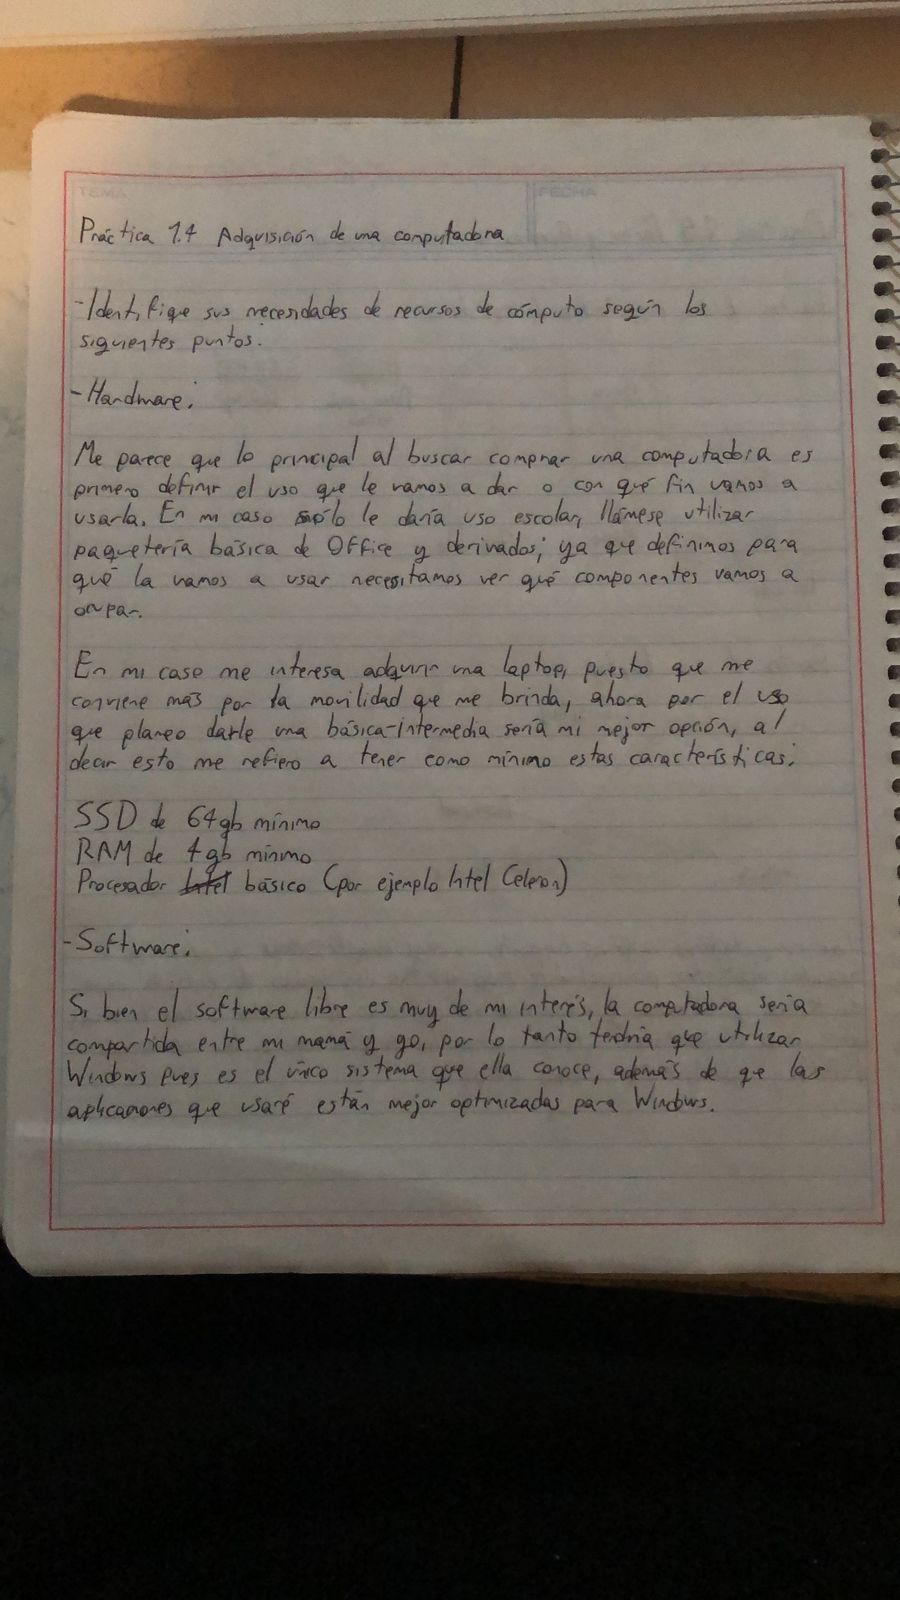 TEMA
FECHA
Práctica 1.4 Adquisición de una computadora
-Identifique sus necesidades de recursos de cómputo según los
siguientes puntos:
-Hardware:
Me parece que lo principal al buscar comprar una computadora es
primero definir el uso que le vamos a dar o con qué fin vamos a
usarla. En mi caso sólo le daría uso escolar, llámese utilizar
paquetería básica de Office y derivados; ya que definimos para
qué la vamos a usar necesitamos ver qué componentes vamos a
ocupar.
En mi caso me interesa adquirir una laptop, puesto que me
conviene más por la movilidad que me brinda, ahora por el uso
que planeo darle una básica-intermedia sería mi mejor opción, al
decir esto me refiero a tener como mínimo estas características:
SSD de 64gb mínimo
RAM de 4gb mínimo
Procesador Intel básico (por ejemplo Intel Celeron)
-Software:
Si bien el software libre es muy de mi interés, la computadora sería
compartida entre mi mamá y yo, por lo tanto tendría que utilizar
Windows pues es el único sistema que ella conoce, además de que las
aplicaciones que usaré están mejor optimizadas para Windows.